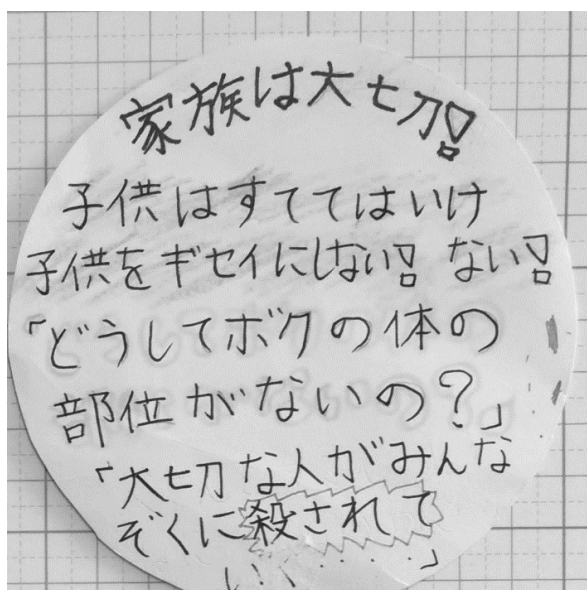 家族は大切!
子供はすててはいけ
子供をギセイにしない! ない!
「どうしてボクの体の
部位がないの?」
「大切な人がみんな
ぞくに殺されて
い・・・・・・・」